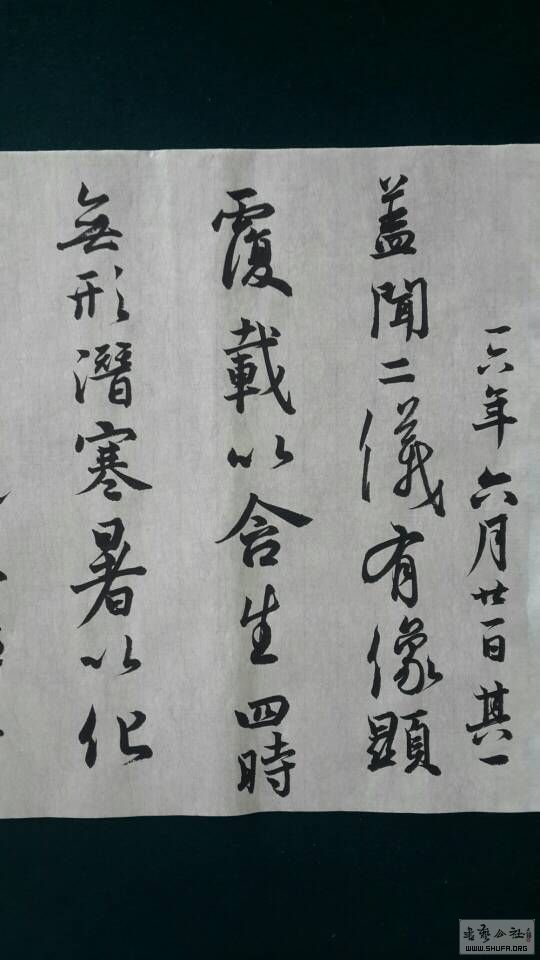 一六年六月廿一日其一
蓋聞二儀有像顯
覆載以含生四時
無形潛寒暑以化
书艺公社
WWW.SHUFA.ORG